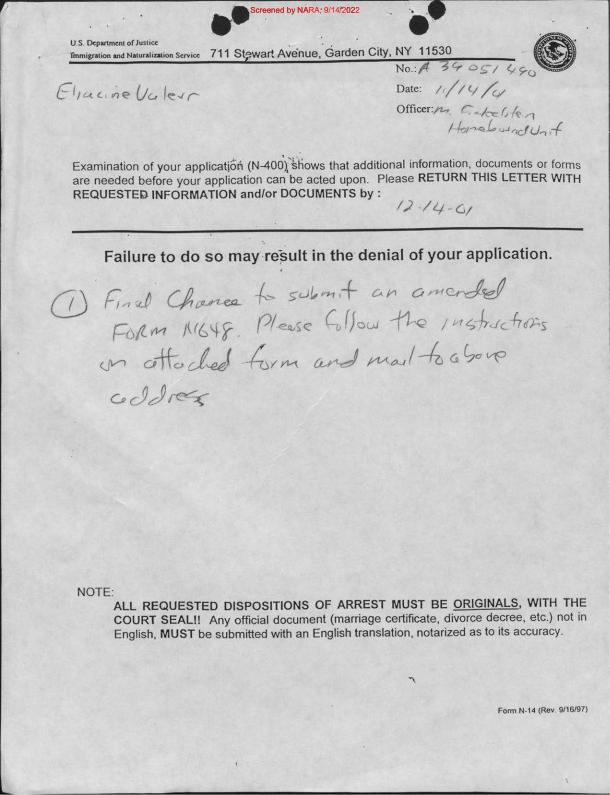 Screened by NARA; 9/14/2022
U.S. Department of Justice
Immigration and Naturalization Service 711 Stewart Avenue, Garden City, NY 11530
No.: A 39 051 490
Date: 11/14/01
Eliacine Valeur
Officer: M.
Homebound Unit
Examination of your application (N-400) shows that additional information, documents or forms
are needed before your application can be acted upon. Please RETURN THIS LETTER WITH
REQUESTED INFORMATION and/or DOCUMENTS by :
12-14-01
Failure to do so may result in the denial of your application.
① Final Chance to submit an amended
FORM N648. Please follow the instructions
on attached form and mail to above
address
NOTE:
ALL REQUESTED DISPOSITIONS OF ARREST MUST BE ORIGINALS, WITH THE
COURT SEAL!! Any official document (marriage certificate, divorce decree, etc.) not in
English, MUST be submitted with an English translation, notarized as to its accuracy.
Form N-14 (Rev. 9/16/97)